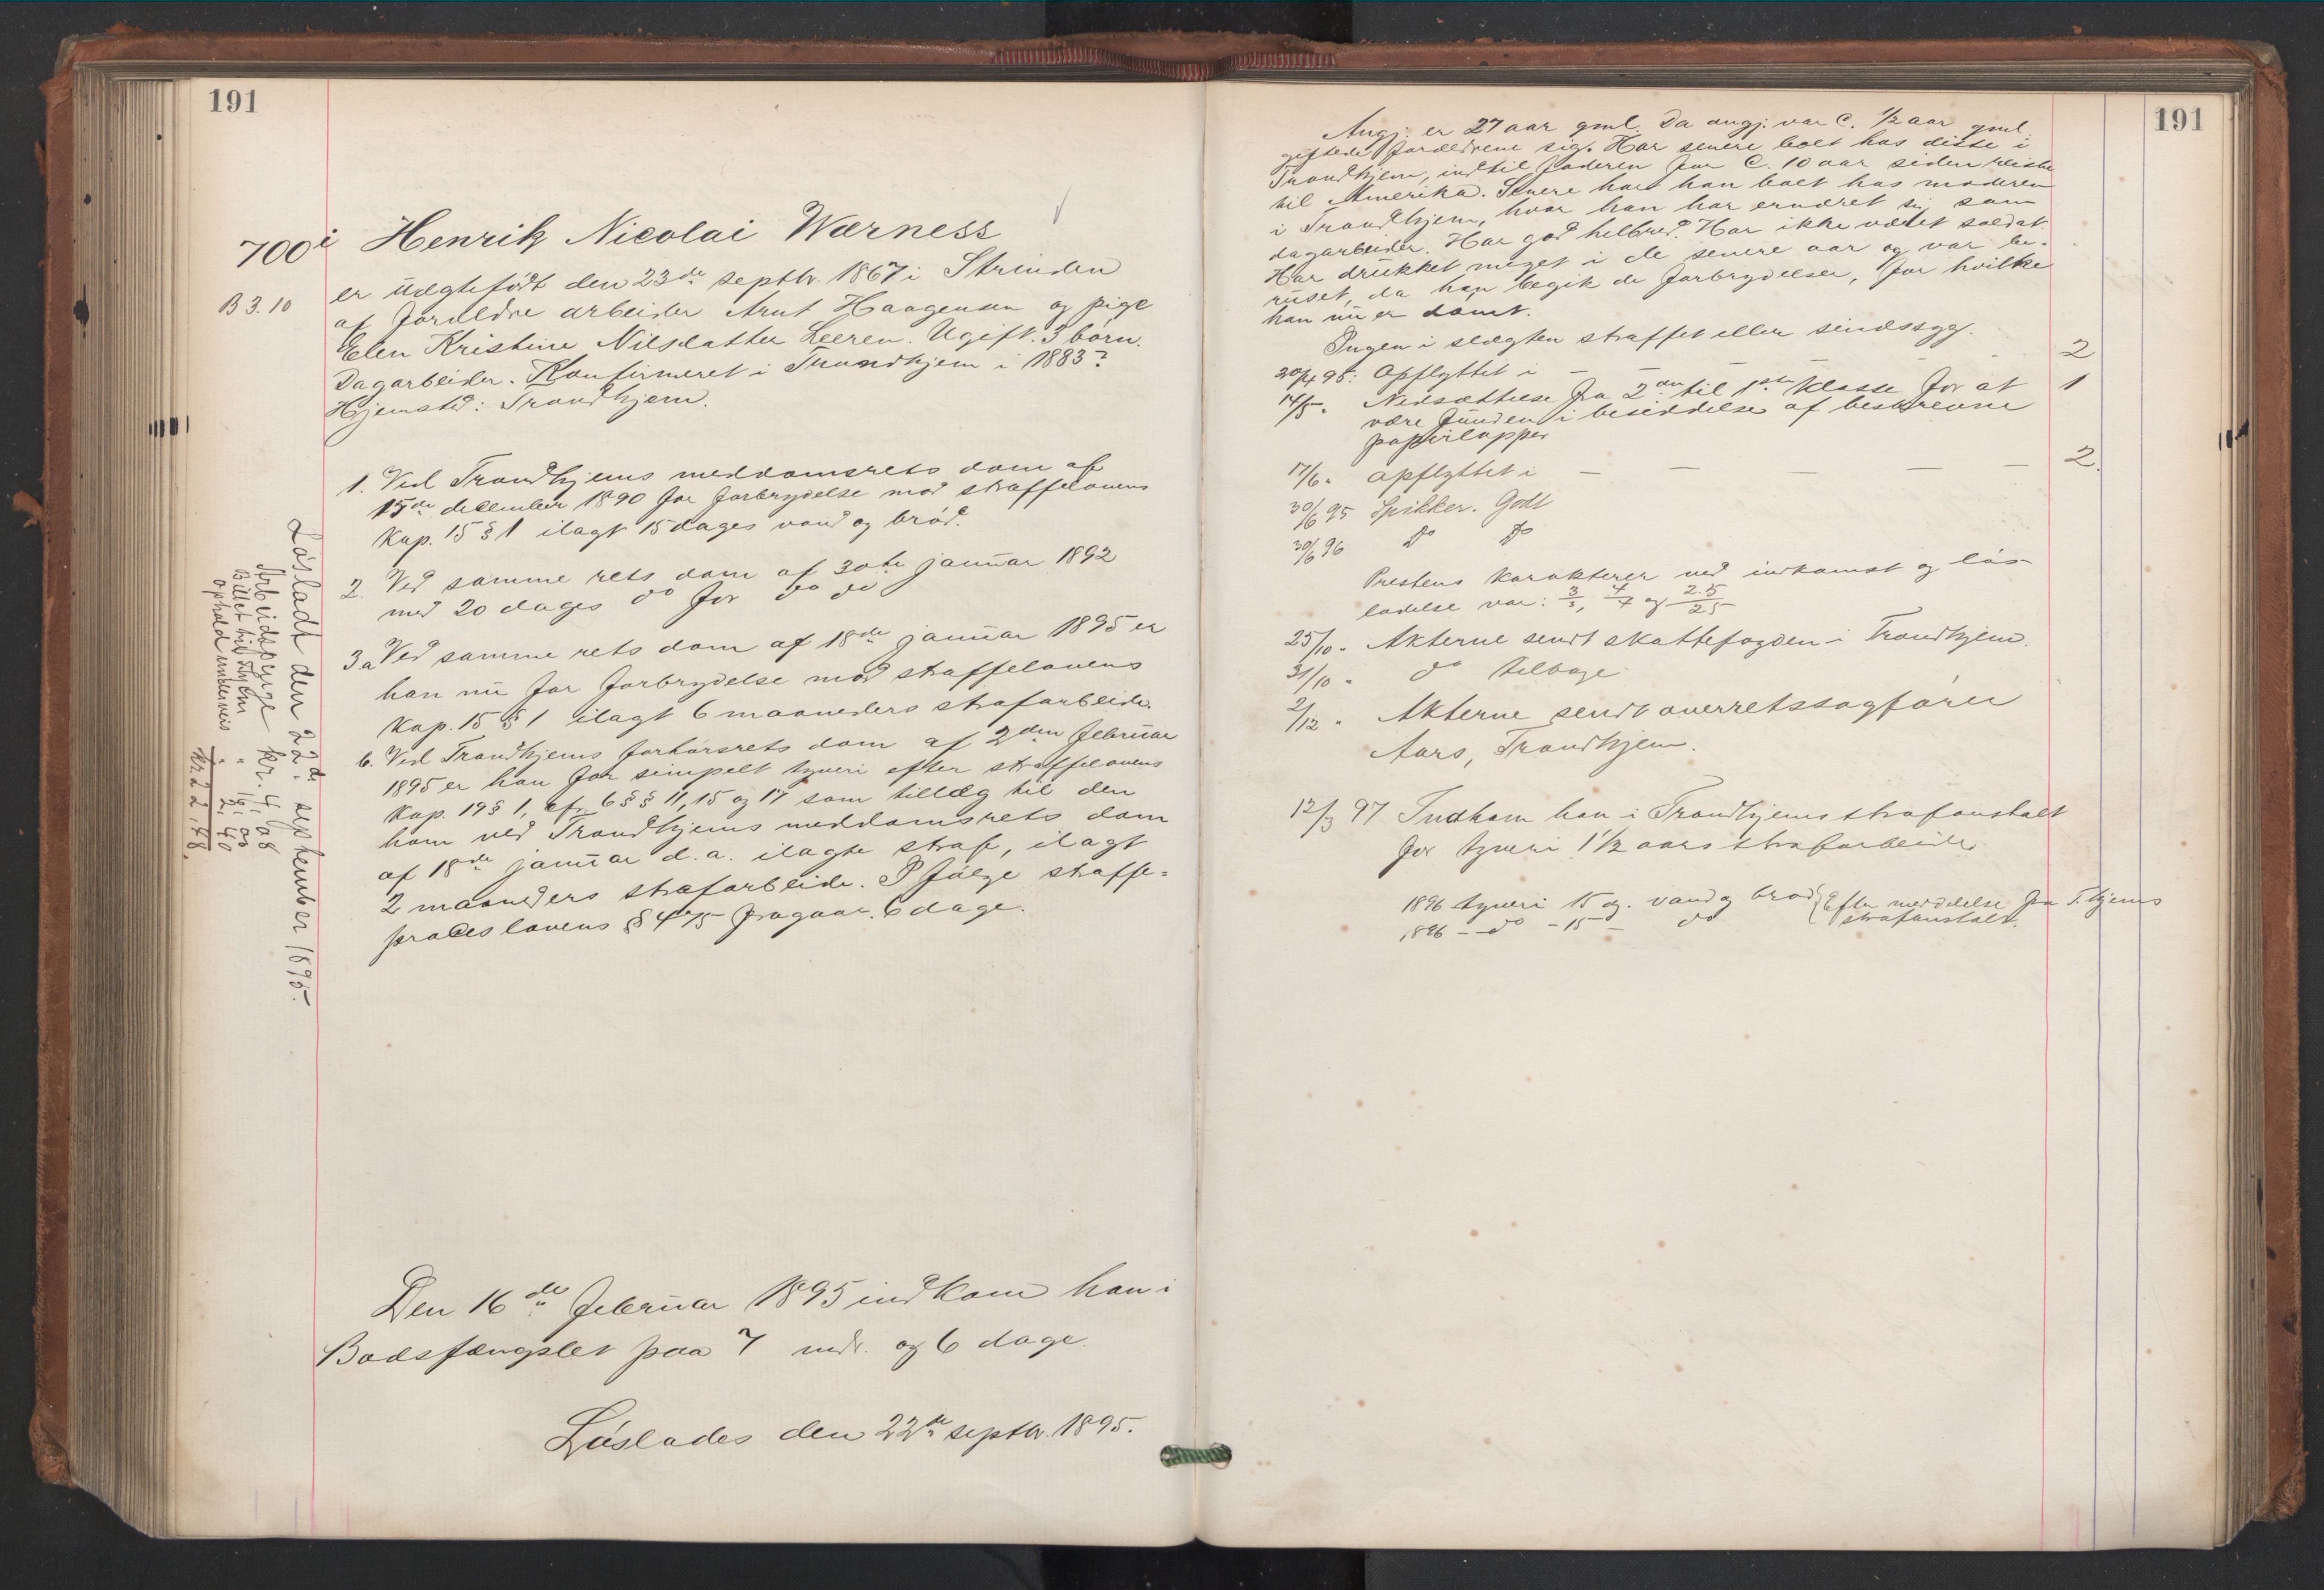 191
700 i Henrik Nicolai Wærness
B 3.10
er uægtefødt den 23de septbr. 1867 i Strinden
af forældre arbeider Arnt Haagensen og pige
Elen Kristine Nilsdatter Leeren. Ugift. 3 børn.
Dagarbeider. Konfirmeret i Trondhjem i 1883?
Hjemsted: Trondhjem.
1. Ved Trondhjems meddomsrets dom af
15de december 1890 for forbrydelse mod straffelovens
Kap. 15 § 1 ilagt 15 dages vand og brød.
2. Ved samme rets dom af 30te januar 1892
med 20 dages do for do do
3a Ved samme rets dom af 18de januar 1895 er
han nu for forbrydelse mod straffelovens
Kap. 15 § 1 ilagt 6 maaneders strafarbeide.
b. Ved Trondhjems forhørsrets dom af 2den februar
1895 er han for simpelt tyveri efter straffelovens
Kap. 19 § 1, cfr. 6 §§ 11, 15 og 17 som tillæg til den
ham ved Trondhjems meddomsrets dom
af 18de januar d.a. ilagte straf, ilagt
2 maaneders strafarbeide. I følge straffe-
proceslovens § 475 fragaar 6 dage.
Løsladt den 22de september 1895.
Arbeidspenge kr. 4,08
Billet til Thjem " 16,00
Ophold underveis " 2,40
kr. 22,48.
Den 16de februar 1895 indkom han i
Bodsfængslet paa 7 mdr. og 6 dage.
Løslades den 22de septbr. 1895.
191
Angj. er 27 aar gml. Da angj. var c. 1/2 aar gml.
giftede forældrene sig. Har senere boet hos disse i
Trondhjem, indtil faderen for c. 10 aar siden reiste
til Amerika. Senere har han boet hos moderen
i Trondhjem, hvor han har ernæret sig som
dagarbeider. Har god helbred. Har ikke været soldat.
Har drukket meget i de senere aar og var be-
ruset, da han begik de forbrydelser, for hvilke
han nu er dømt.
Ingen i slægten straffet eller sindssyg.
20/4 95: Opflyttet i – – – – – 2
14/5 " Nedsættelse fra 2den til 1ste klasse for at 1
være funden i besiddelse af beskrevne
papirlapper
17/6 " Opflyttet i – – – – – 2.
30/6 95 Spikker. Godt
30/6 96 do do
Prestens karakterer ved indkomst og løs-
ladelse var: 3/3, 4/4 og 2.5/2.5
25/10 " Akterne sendt skattefogden i Trondhjem.
31/10 " do tilbage
2/12 " Akterne sendt overretssagfører
Aars, Trondhjem.
12/3 97 Indkom han i Trondhjems strafanstalt
for tyveri 1 1/2 aars strafarbeide.
1896 tyveri 15 dg. vand og brød } Efter meddelelse fra T.hjems
1896 – do – 15 – do } strafanstalt.